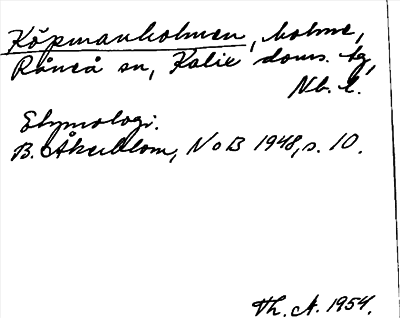 Köpmanholmen, holme,
Råneå sn, Kalix doms. tg,
Nb. l.
Etymologi.
B. Åkerblom, NoB 1948, s. 10.
Th. A. 1954.